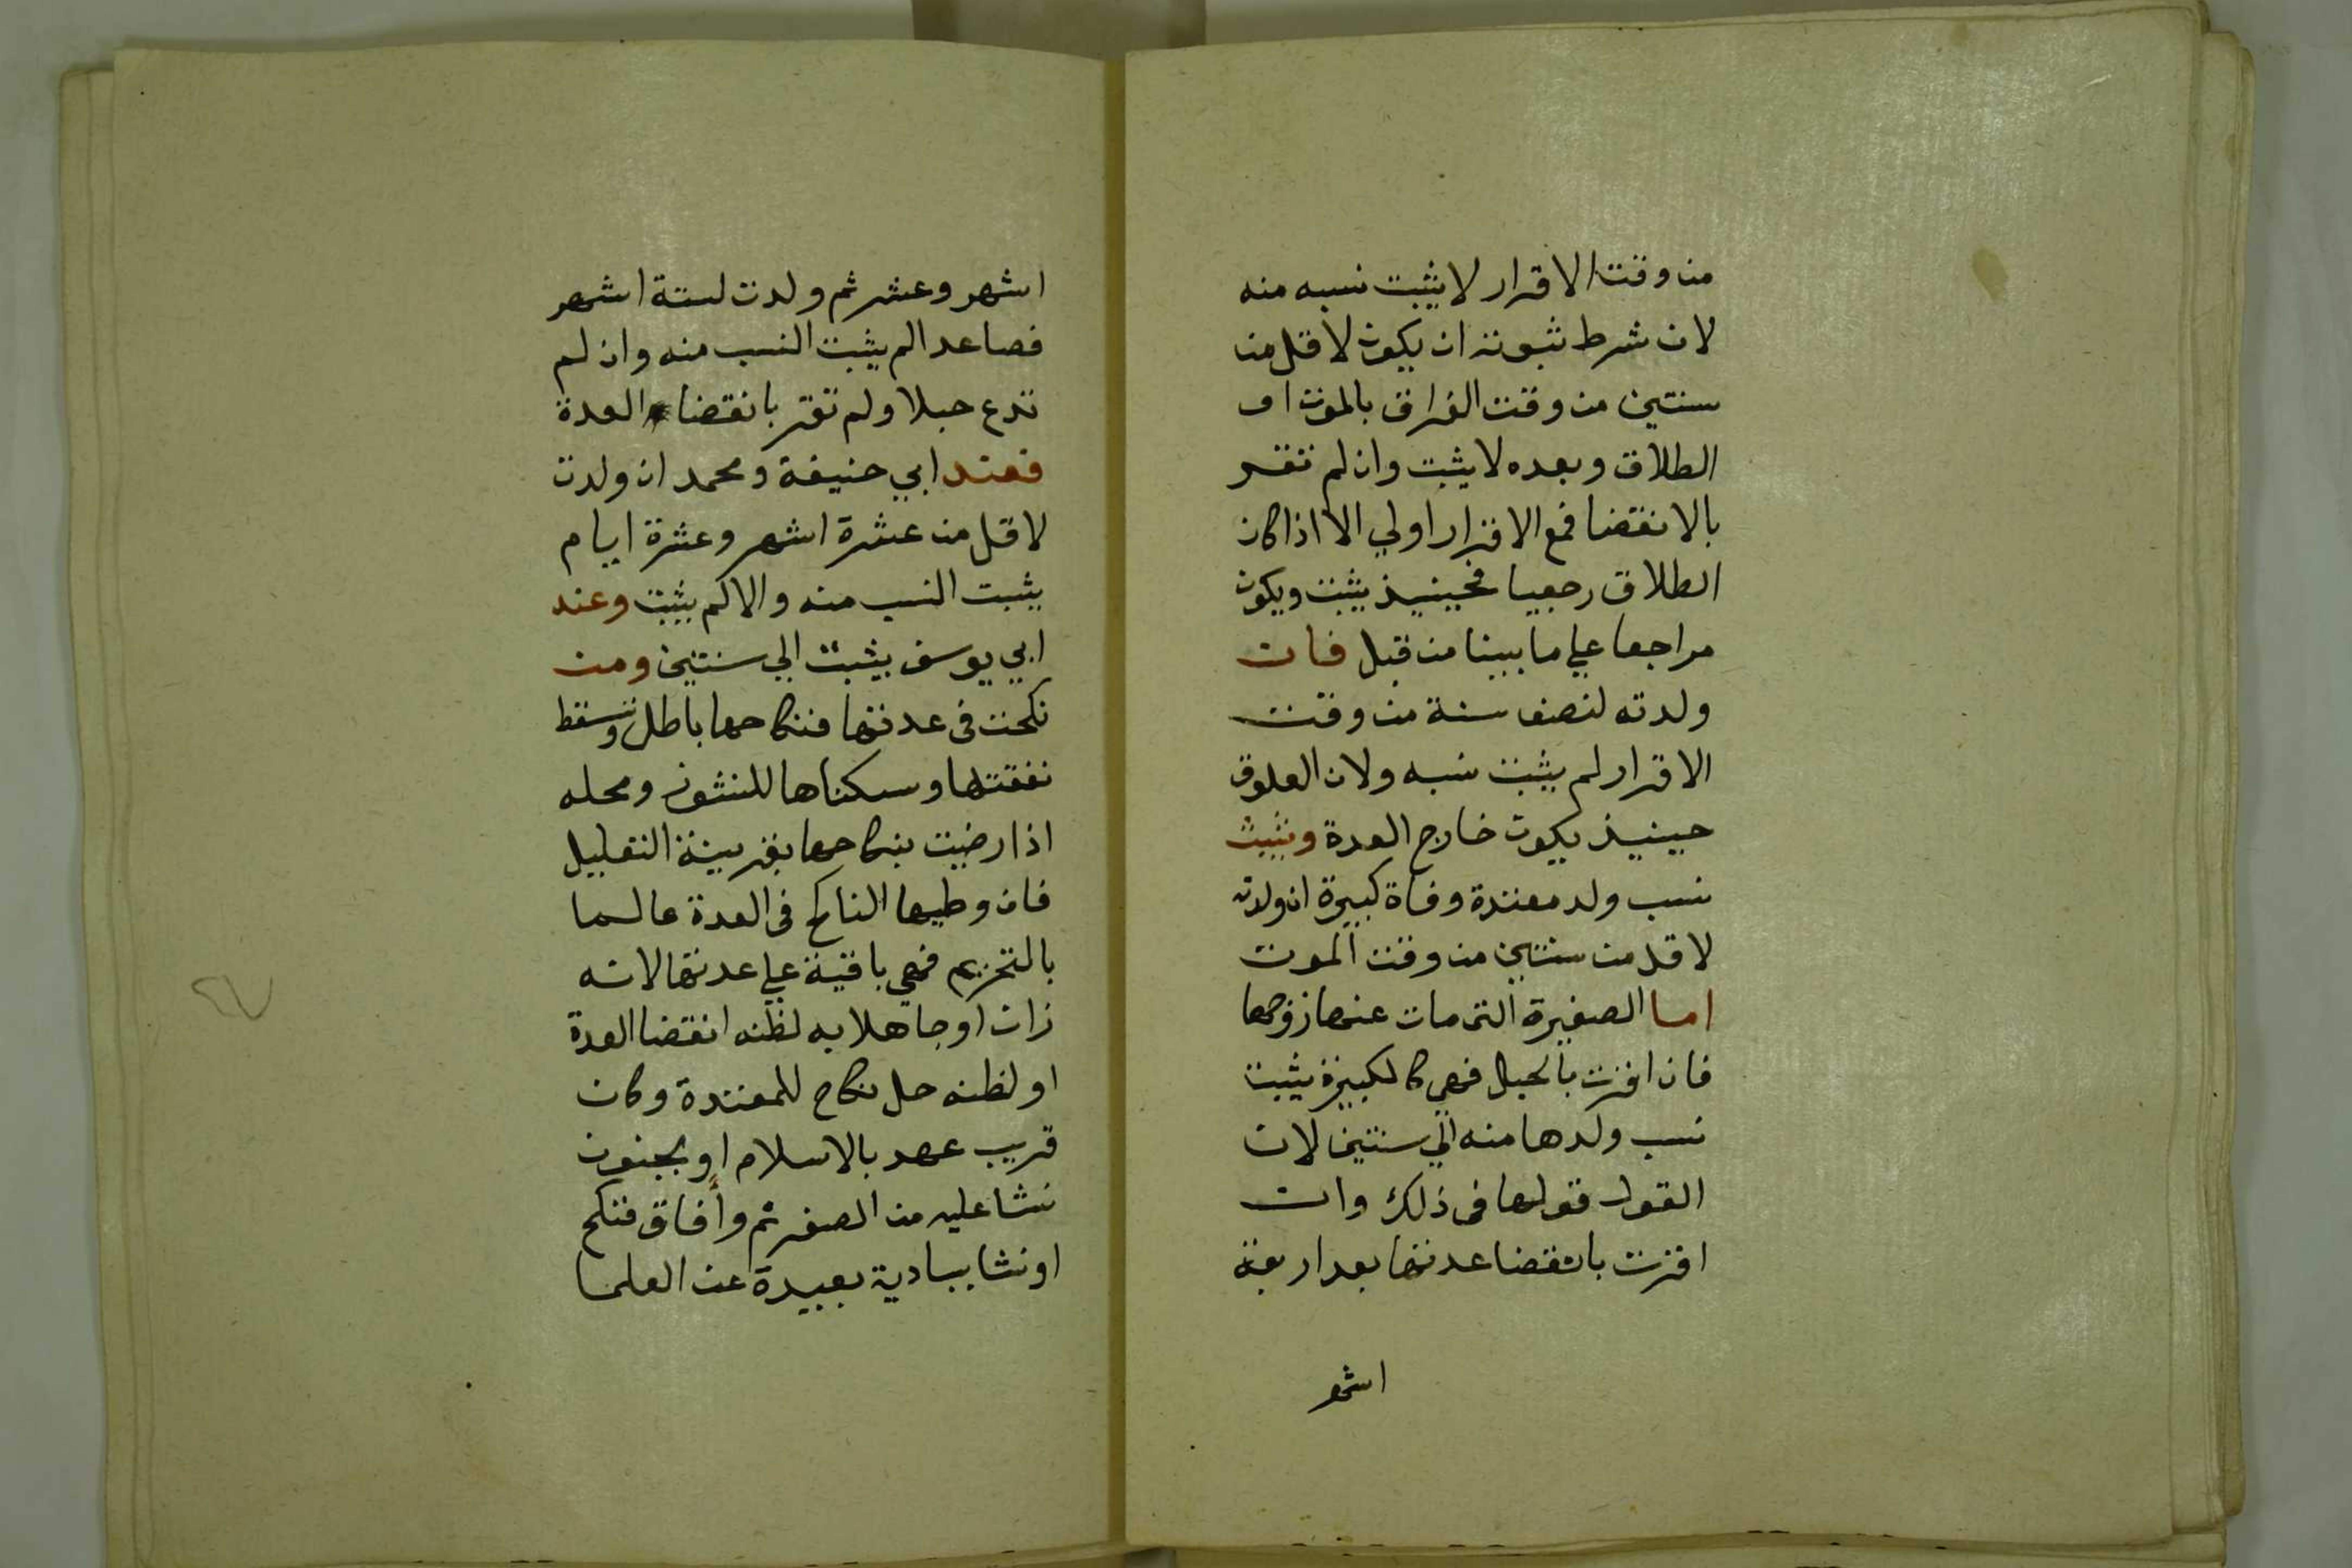 من وقت الاقرار لا يثبت نسبه منه
لان شرط ثبوته ان يكون لاقل من
سنتين من وقت الفراق بالموت او
الطلاق وبعده لا يثبت وان لم تقر
بالانقضا فمع الاقرار اولي الا اذا كان
الطلاق رجعيا فحينيذ يثبت ويكون
مراجعا علي ما بينا من قبل فان
ولدته لنصف سنة من وقت
الاقرار لم يثبت نسبه ولان العلوق
حينيذ يكون خارج العدة ويثبت
نسب ولد معتدة وفاة كبيرة ان ولدته
لاقل من سنتين من وقت الموت
اما الصغيرة التي مات عنها زوجها
فان اقرت بالحبل فهي كالكبيرة يثبت
نسب ولدها منه الي سنتين لان
القول قولها في ذلك وان
اقرت بانقضا عدتها بعد اربعة
اشهر
اشهر وعشر ثم ولدت لستة اشهر
فصاعدا لم يثبت النسب منه وان لم
تدع حبلا ولم تقر بانقضا العدة
فعند ابي حنيفة ومحمد ان ولدت
لاقل من عشرة اشهر وعشرة ايام
يثبت النسب منه والا لم يثبت وعند
ابي يوسف يثبت الي سنتين ومن
نكحت في عدتها فنكاحها باطل وتسقط
نفقتها وسكناها للنشوز ومحله
اذا رضيت بنكاحها بقرينة التعليل
فان وطيها الناكح في العدة عالما
بالتحريم فهي باقية علي عدتها لانه
زان او جاهلا به لظنه انقضا العدة
او لظنه حل نكاح للمعتدة وكان
قريب عهد بالاسلام او بجنون
نشا عليه من الصغر ثم وافاق فنكح
او نشا ببادية بعيدة عن العلما
٦٧